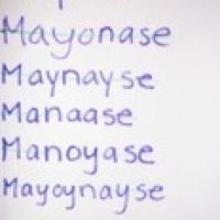 Mayonase
Maynayse
Manaase
Manoyase
Mayoynayse